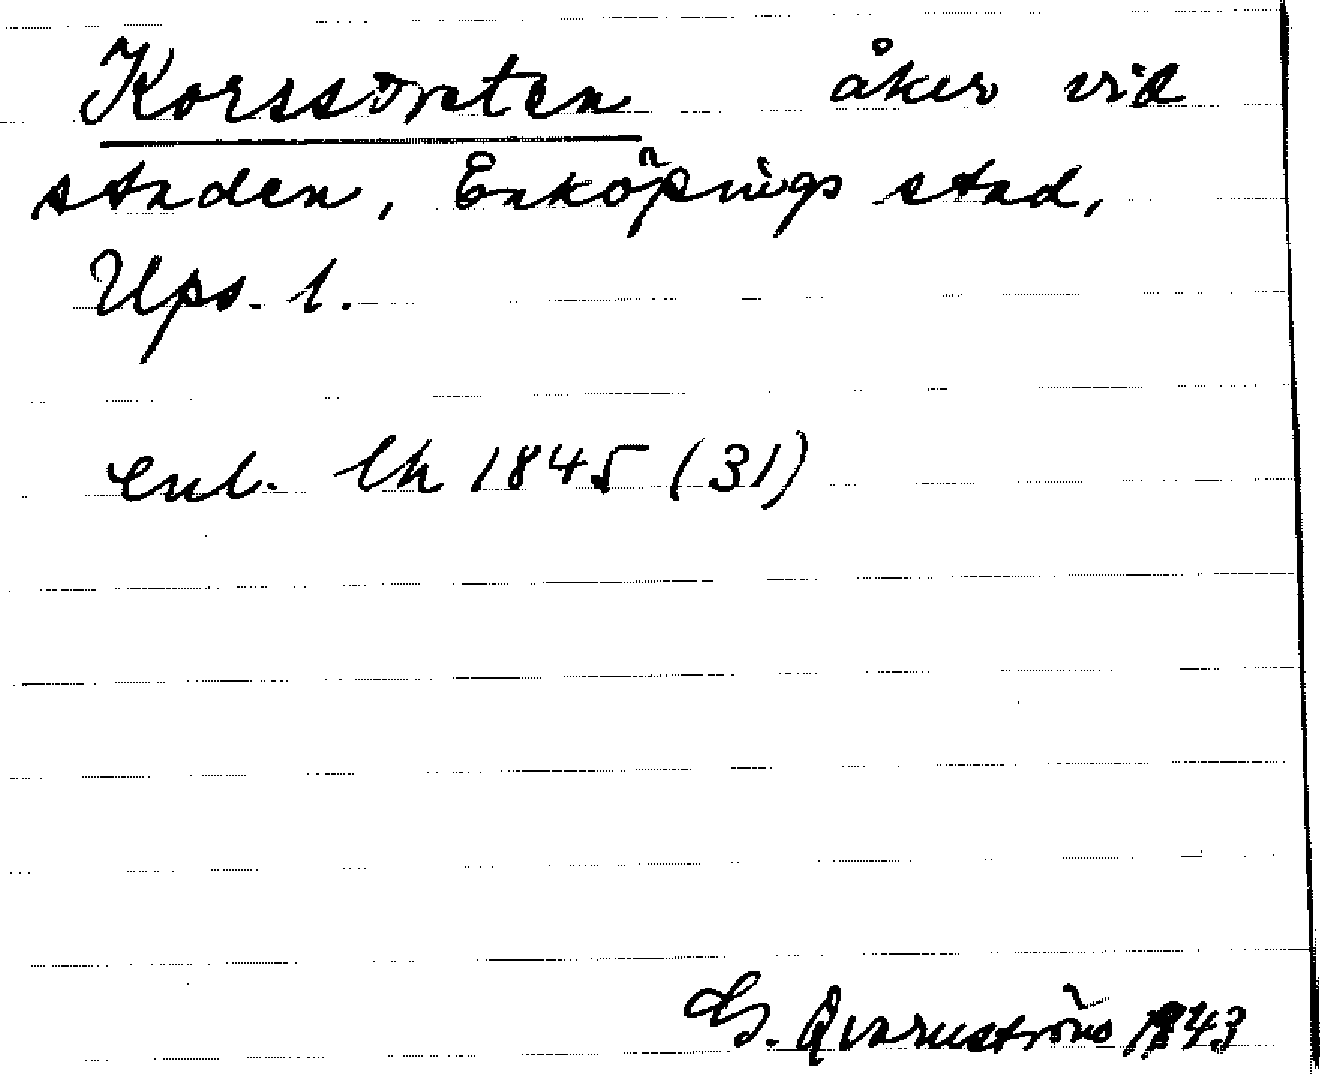 Korssorsten åker vid
staden, Enköpings stad,
Ups. l.
enl. lh 1845 (31)
G. Qvarnström 1943